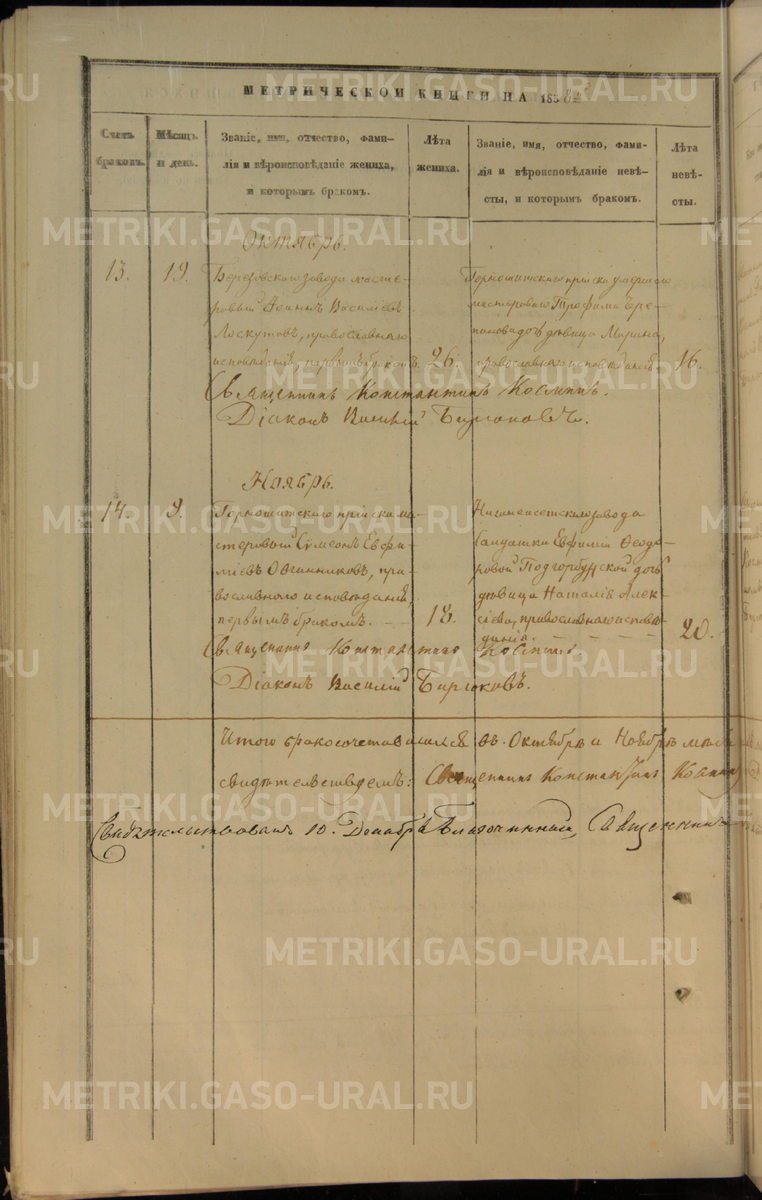 МЕТРИЧЕСКОЙ КНИГИ НА 185
Счетъ браковъ.
Мѣсяцъ и день.
Званіе, имя, отчество, фами-
лія и вѣроисповѣданіе жениха,
и которымъ бракомъ.
Лѣта
жениха.
Званіе, имя, отчество, фами-
лія и вѣроисповѣданіе невѣ-
сты, и которымъ бракомъ.
Лѣта
невѣ-
сты.
Октябрь.
13. 19.
Березовскаго завода масте-
ровый Іоаннъ Василіевъ
Лоскутовъ, православнаго
исповѣданія, первымъ бракомъ. 26.
Горнощитскаго пріиска умершаго
мастероваго Трофима Чере-
панова дочь дѣвица Марина,
православнаго исповѣданія. 16.
Священникъ Константинъ
Діаконъ Василій Бирюковъ.
Ноябрь.
14. 9.
Горнощитскаго пріиска ма-
стеровый Сумеонъ Евфи-
міевъ Овчинниковъ, пра-
вославнаго исповѣданія,
первымъ бракомъ. 18.
Нижнеисетскаго завода
Евфиміи Ѳеодо-
ровой Подгорбунской дочь
дѣвица Наталія Алек-
сіева, православнаго исповѣ-
данія. 20.
Священникъ Константинъ
Діаконъ Василій Бирюковъ.
Итого бракосочетавшихся въ Октябрѣ и Ноябрѣ
свидѣтельствуемъ: Священникъ Константинъ
Свидѣтельствовалъ 10. Декабря Благочинный, Священникъ
METRIKI.GASO-URAL.RU